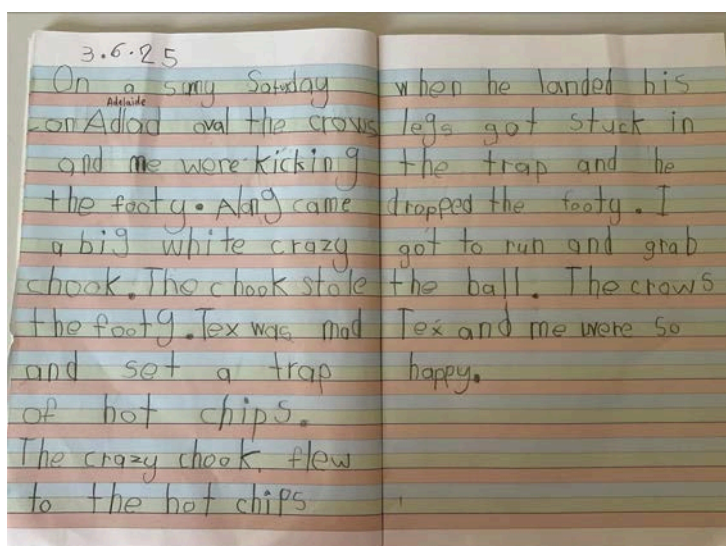 3.6.25
On a suny Saturday
Adelaide
on Adlad oval the crows
and me were kicking
the footy. Along came
a big white crazy
chook. The chook stole
the footy. Tex was mad
and set a trap
of hot chips.
The crazy chook flew
to the hot chips
when he landed his
legs got stuck in
the trap and he
dropped the footy. I
got to run and grab
the ball. The crows
Tex and me were so
happy.